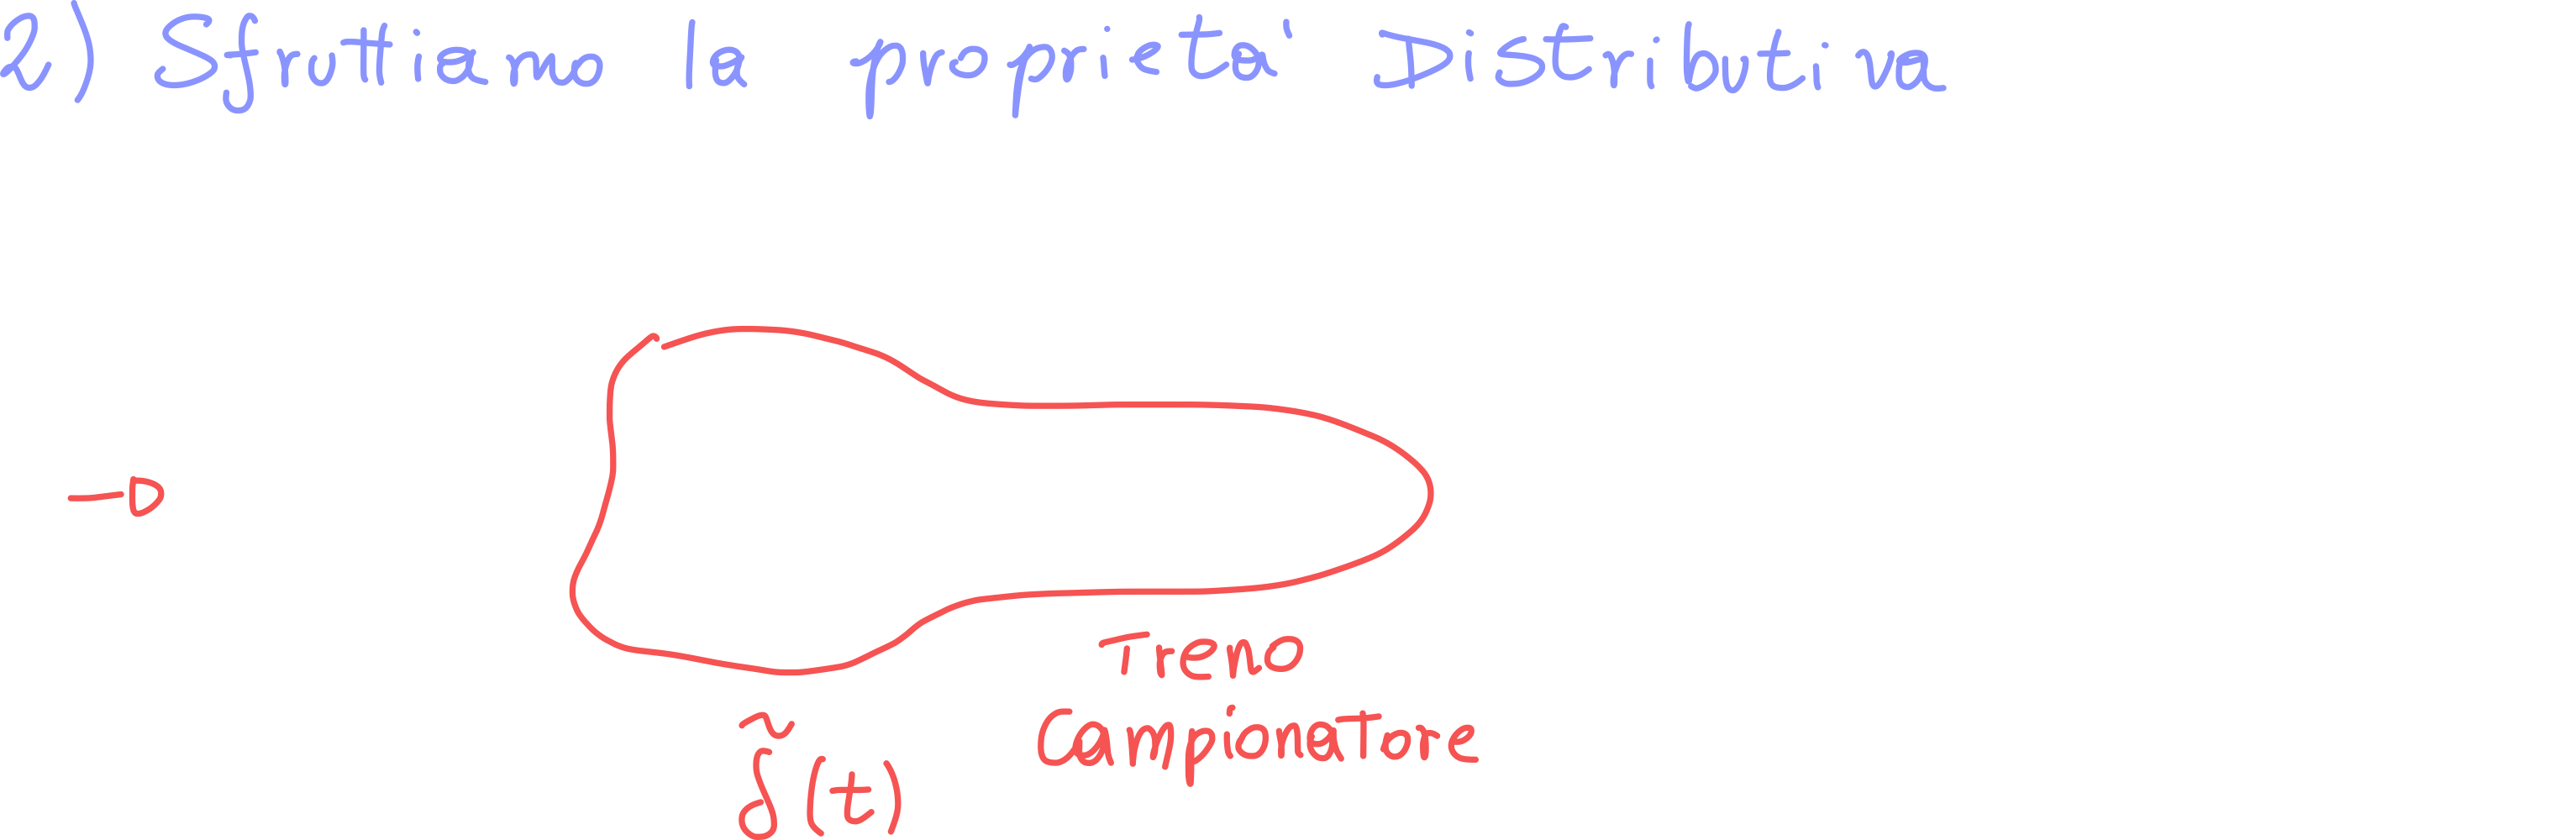 2) Sfruttiamo la proprieta' Distributiva
Treno
Campionatore
δ̃(t)